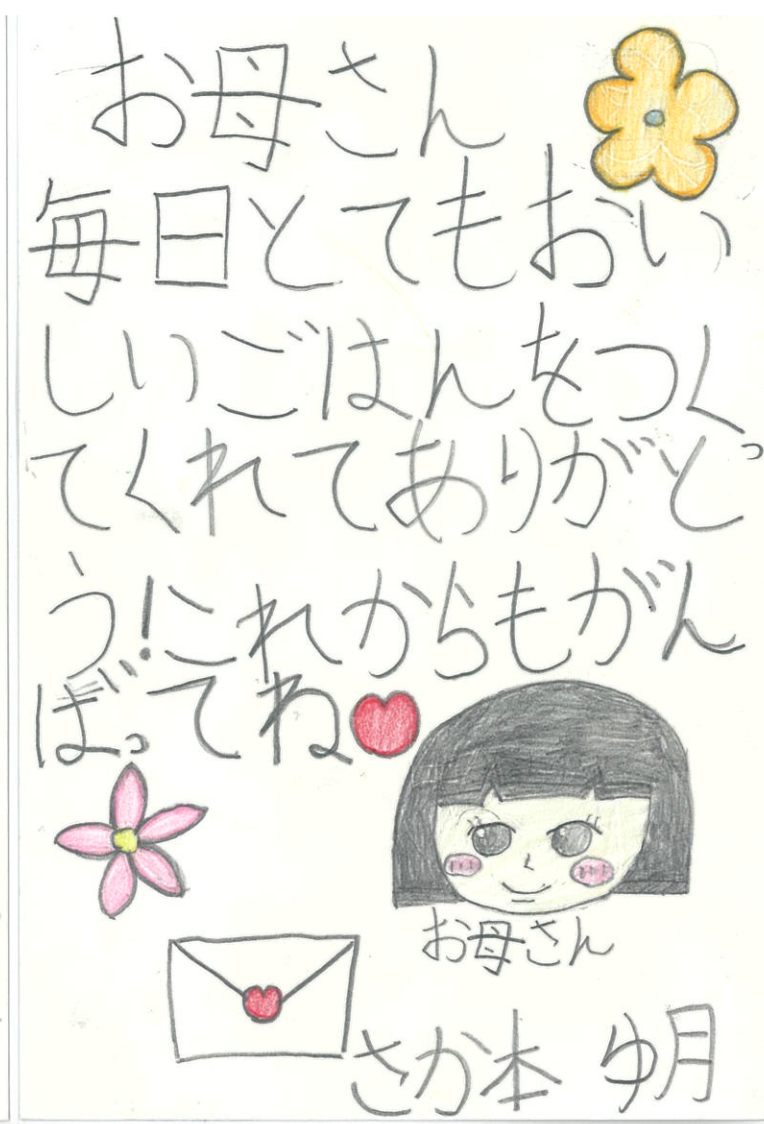 お母さん
毎日とてもおい
しいごはんをつくっ
てくれてありがと
う!これからもがん
ばってね
お母さん
さか本 ゆ月